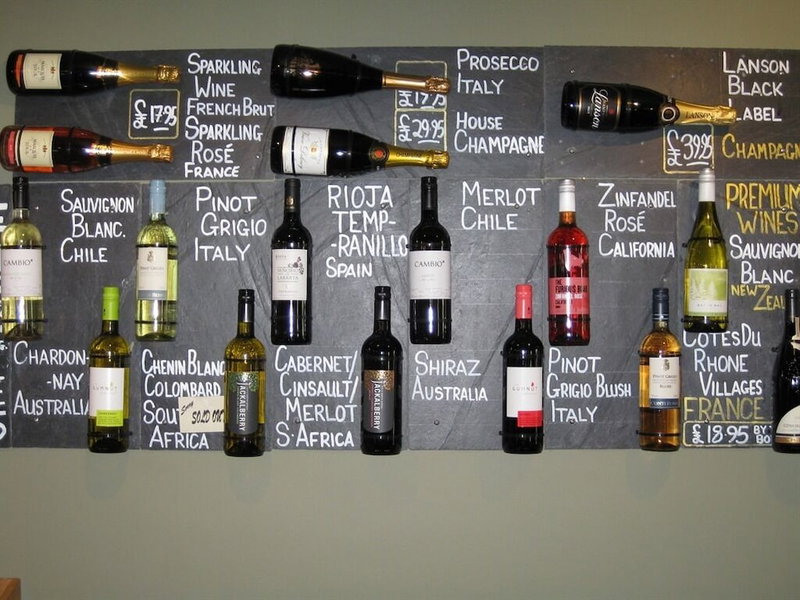 SPARKLING
WINE
FRENCH BRUT
£17.95
SPARKLING
ROSÉ
FRANCE
PROSECCO
ITALY
£17.95
£29.95
HOUSE
CHAMPAGNE
LANSON
BLACK
LABEL
£39.95
CHAMPAGN
Lanson
LANSON
SAUVIGNON
BLANC.
CHILE
PINOT
GRIGIO
ITALY
RIOJA
TEMP-
RANILLO
SPAIN
MERLOT
CHILE
ZINFANDEL
ROSÉ
CALIFORNIA
PREMIUM
WINES
SAUVIGNON
BLANC
NEW ZEAL
CAMBIO
PINOT GRIGIO
LABARTA
CAMBIO
THE
FURIOUS
CHARDON-
-NAY
AUSTRALIA
CHENIN BLANC
COLOMBARD
SOU
AFRICA
SOLD OUT
CABERNET/
CINSAULT/
MERLOT
S. AFRICA
SHIRAZ
AUSTRALIA
PINOT
GRIGIO BLUSH
ITALY
COTES DU
RHONE
VILLAGES
FRANCE
£18.95 BY
BO
GUMNUT
JACKALBERRY
JACKALBERRY
GUMNUT
PINOT GRIGIO
BLUSH